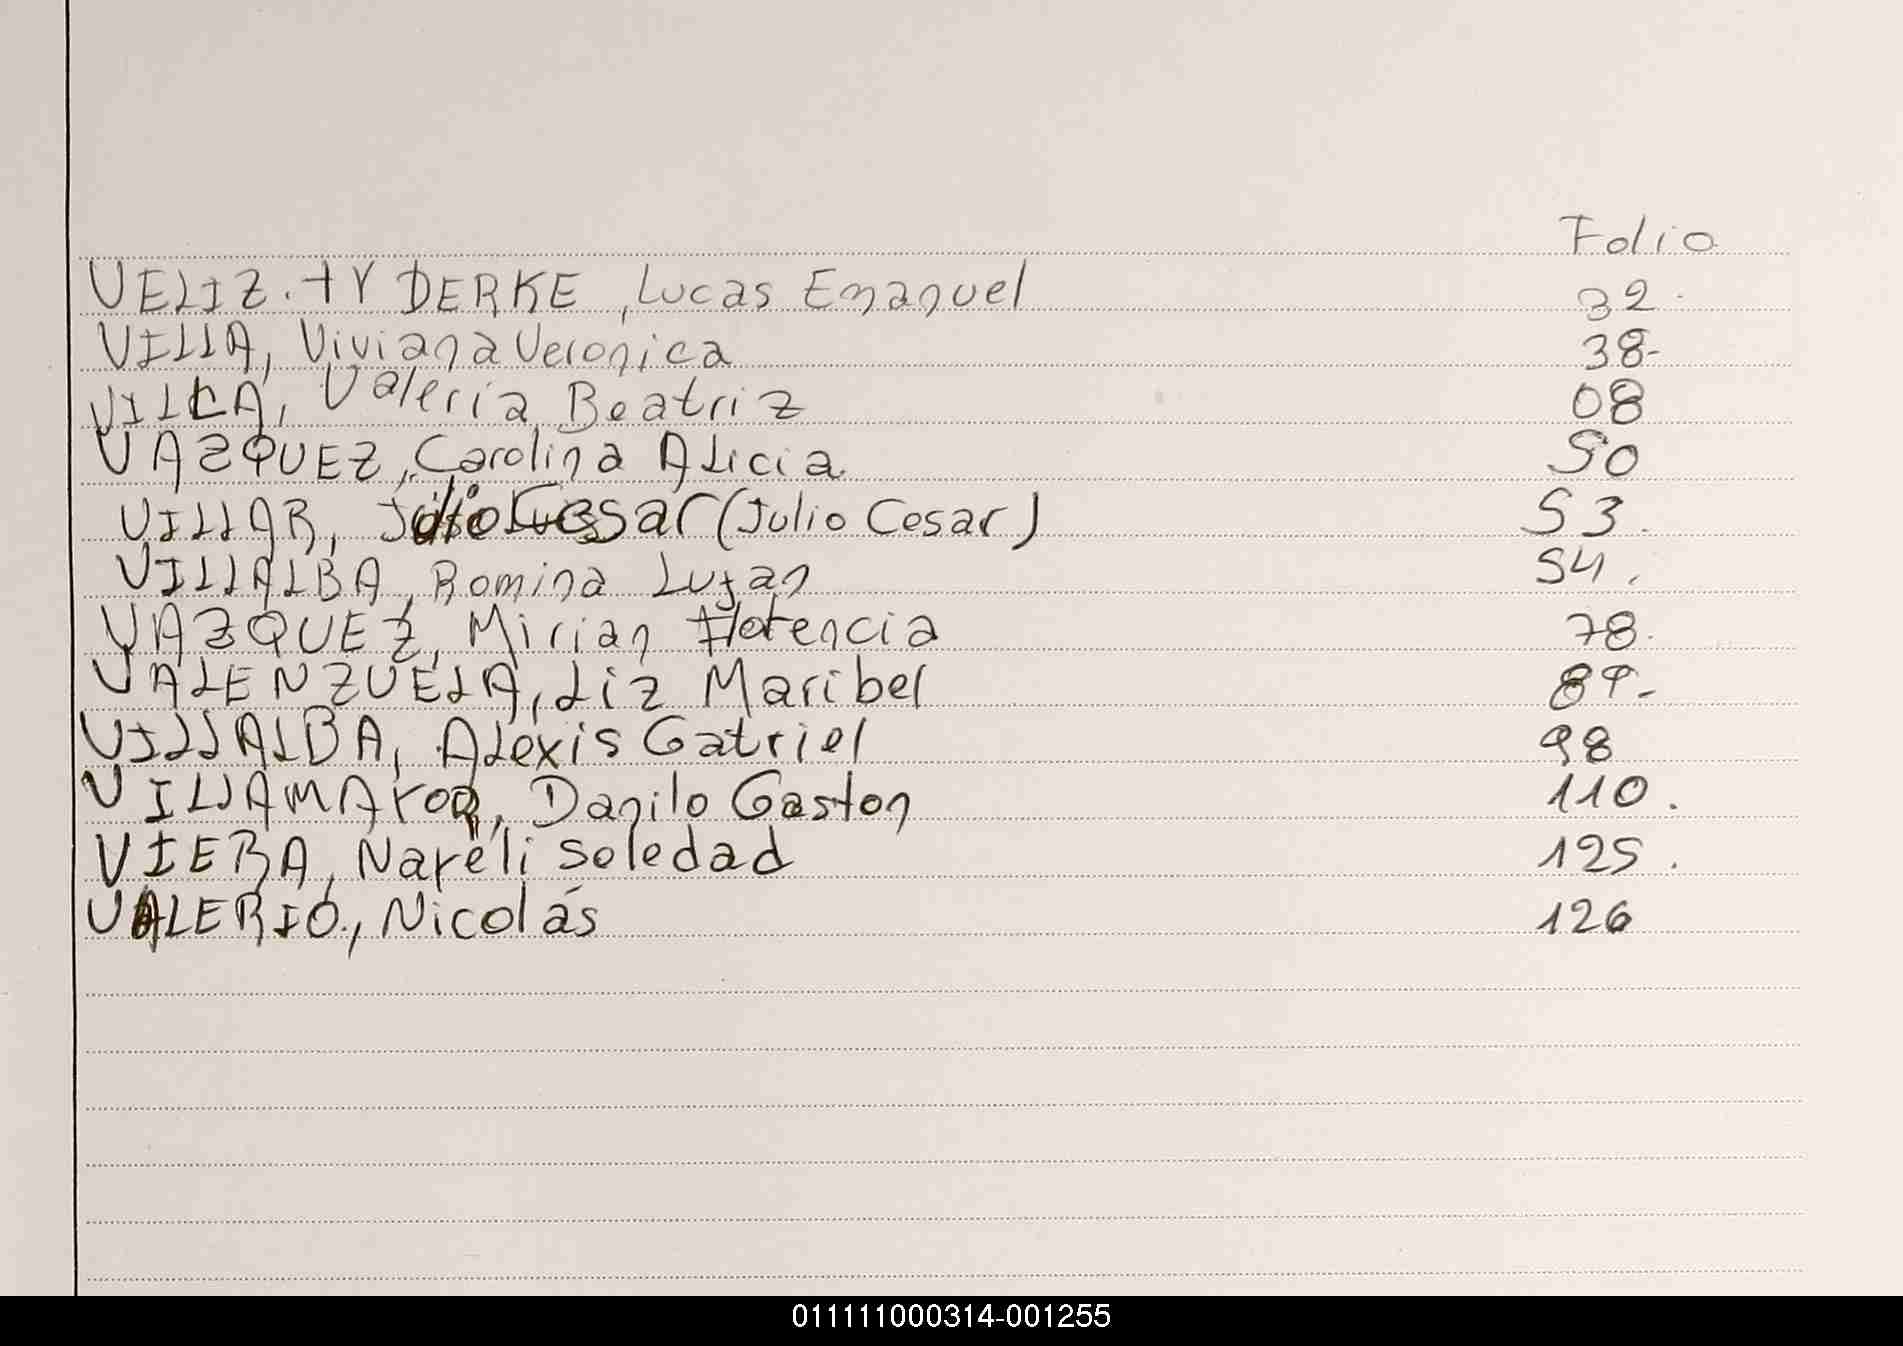 Folio
VELIZ. TY DERKE, Lucas Emanuel 32.
VILLA, Viviana Veronica 38-
VILLA, Valeria Beatriz 08
VAZQUEZ, Carolina Alicia 50
VILLAR, Julio Cesar (Julio Cesar) 53.
VILLALBA, Romina Lujan 54.
VAZQUEZ, Mirian Florencia 78.
VALENZUELA, Liz Maribel 89-
VILLALBA, Alexis Gatriel 98
VILLAMAYOR, Danilo Gaston 110.
VIERA, Nayeli Soledad 125.
VALERIO, Nicolás 126
011111000314-001255